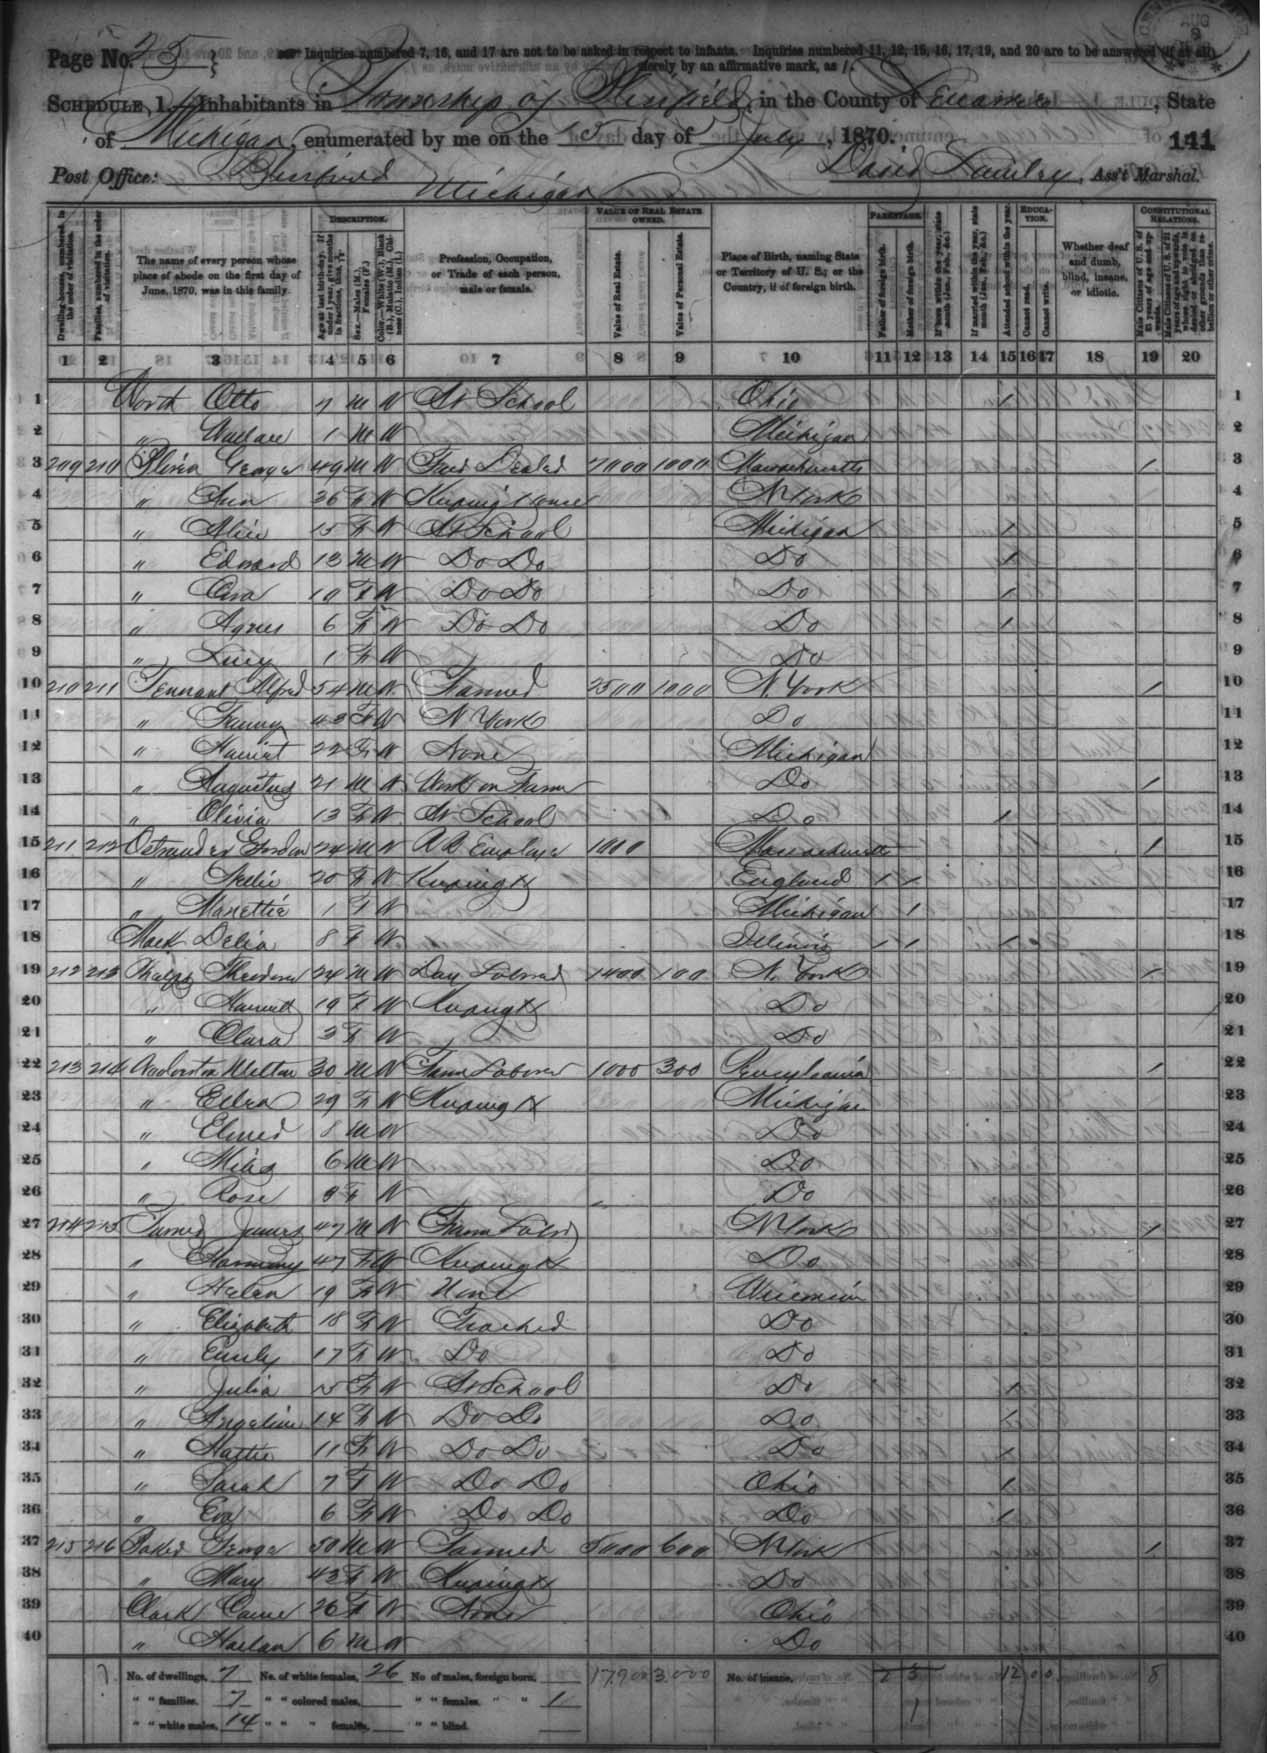 Page No. 25 Inquiries numbered 7, 16, and 17 are not to be asked in respect to infants. Inquiries numbered 11, 12, 15, 16, 17, 19, and 20 are to be answered (if at all)
merely by an affirmative mark, as /.
SCHEDULE 1.—Inhabitants in Township of Blissfield, in the County of Lenawee, State
of Michigan, enumerated by me on the 15 day of July, 1870. 141
Post Office: Blissfield Michigan David Ass't Marshal.
Dwelling-houses, numbered in the order of visitation. Families, numbered in the order of visitation. The name of every person whose place of abode on the first day of June, 1870, was in this family. DESCRIPTION. Profession, Occupation, or Trade of each person, male or female. VALUE OF REAL ESTATE OWNED. Value of Real Estate. Value of Personal Estate. Place of Birth, naming State or Territory of U. S.; or the Country, if of foreign birth. PARENTAGE. Father of foreign birth. Mother of foreign birth. Attended school within the year. EDUCATION. Cannot read. Cannot write. Whether deaf and dumb, blind, insane, or idiotic. CONSTITUTIONAL RELATIONS.
1 2 3 4 5 6 7 8 9 10 11 12 13 14 15 16 17 18 19 20
1 Worth Otto 7 M W At School Ohio / 1
2 " Wallace 1 M W Michigan 2
3 209 210 George 49 M W Dealer 7000 1000 Massachusetts / 3
4 " Ann 36 F W Keeping House N York 4
5 " Alice 15 F W At School Michigan / 5
6 " Edward 13 M W Do Do Do / 6
7 " Cora 10 F W Do Do Do / 7
8 " Agnes 6 F W Do Do Do / 8
9 " Lucy 1 F W Do 9
10 210 211 Tennant Alfred 54 M W Farmer 2500 1000 N York / 10
11 " Fanny 43 F W N York Do 11
12 " Harriet 22 F W None Michigan 12
13 " Augustus 21 M W Work on Farm Do / 13
14 " Olivia 13 F W At School Do / 14
15 211 212 Ostrander Gordon 24 M W R R Employe 1000 Massachusetts / 15
16 " 20 F W Keeping H England / / 16
17 " Manettie 1 F W Michigan / 17
18 Mack Delia 8 F W Illinois / / / 18
19 212 213 Phelps Theodore 24 M W Day Laborer 1400 100 N. York / 19
20 " Hannah 19 F W Keeping H Do 20
21 " Clara 3 F W Do 21
22 213 214 Milton 30 M W Farm Laborer 1000 300 Pennsylvania / 22
23 " Ellen 29 F W Keeping H Michigan 23
24 " Elmer 8 M W Do 24
25 " Miles 6 M W Do 25
26 " Rose F W Do 26
27 214 215 Turner James 47 M W Farm Labor N York / 27
28 " Harmony 47 F W Keeping H Do 28
29 " Helen 19 F W None Wisconsin 29
30 " Elizabeth 18 F W Teacher Do 30
31 " Emily 17 F W Do Do 31
32 " Julia 15 F W At School Do / 32
33 " Angeline 14 F W Do Do Do / 33
34 " Hattie 11 F W Do Do Do / 34
35 " Sarah 7 F W Do Do Ohio / 35
36 " Eva 6 F W Do Do Do / 36
37 215 216 Baker George 50 M W Farmer 5000 600 N York / 37
38 " Mary 43 F W Keeping H Do 38
39 Clark Carrie 26 F W None Ohio 39
40 " Harlan 6 M W Do 40
No. of dwellings, 7 No. of white females, 26 No of males, foreign born, 17900 3000 No. of insane, 12 0 0 8
" " families, 7 " " colored males, " " females, " " 1
" " white males, 14 " " " females, " " blind.